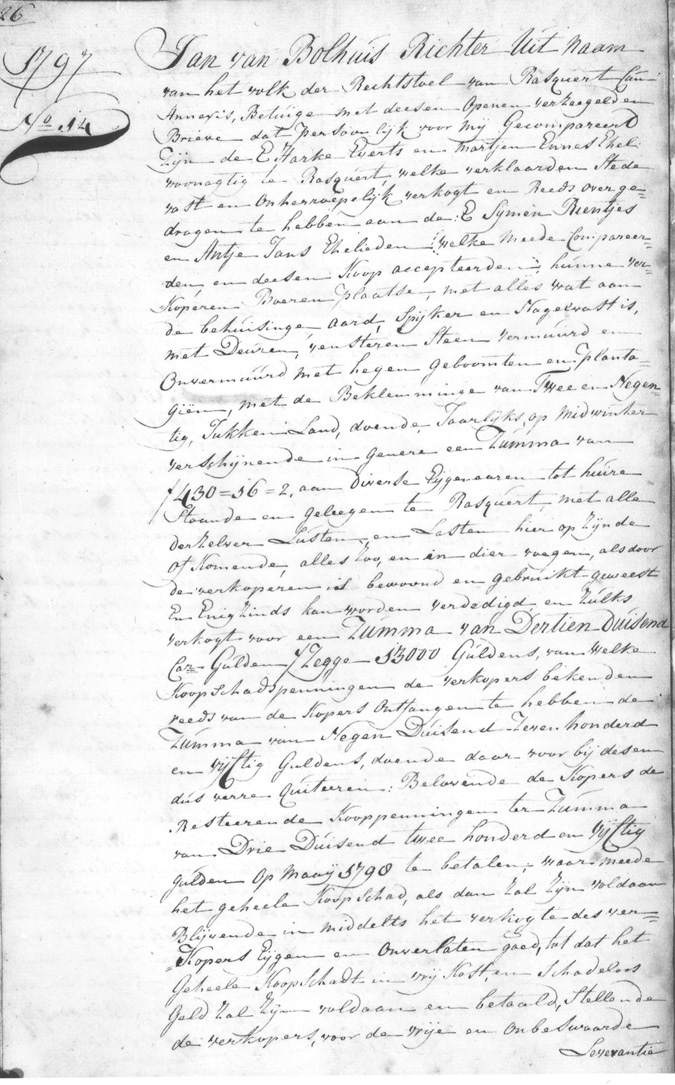 26
1797
No. 14
Jan van Bolhuis Richter Uit Naam
van het volk der Rechtstoel van Rasquert Cau
Annexis, Betuige met deesen Openen verzeegelden
Brieve dat persoonlijk voor mij Gecompareert
Zijn de E Harke Everts en Martjen Ennes Ehel:
woonagtig te Rasquert, welke verklaarden Stede
vast en Onherroepelijk verkogt en Reeds overge-
dragen te hebben aan de: E Symen Rientjes
en Antje Jans Ehelieden: welke meede Compareer-
den, en deesen Koop accepteerden, hunne ver-
Koperen Boeren plaatse, met alles wat aan
de behuisinge, aard, Spijker en Nagelvast is,
met Deuren, vensteren Steen vermuurd en
Onvermuurd met hegen geboomten en planta-
gien, met de Beklemminge van Twee en Negen-
tig, Jukken Land, doende Jaarlijks, op midwinter
verschijnende in genere een Zumma van
ƒ 430=16=2, aan diverse Eijgenaaren tot huire
Staande en geleegen te Rasquert, met alle
derzelver Lusten, en Lasten hier op Zijnde
of Komende, alles Zoo, en in dier voegen, als door
de verkoperen is bewoond en gebruikt geweest
En Enigzinds kan worden verdedigd en Zulks
verkogt voor een Zumma van Dertien Duisend
Car: Gulden / Zegge 13000 Guldens, van welke
Koop Schadspenningen de verkopers bekenden
reeds van de Kopers Ontfangen te hebben de
Zumma van Negen Duisend Zeven honderd
en vijftig Guldens, doende daar voor bij desen
dus verre Quiteeren: Belovende de Kopers de
Resteerende Kooppenningen ter Zumma
van Drie Duisend twee honderd en vijftig
gulden Op Maaij 1798 te betalen; waar meede
het geheele Koop Schad, als dan Zal Zijn voldaan
Blijvende in middelts het verkogte des ver=
=Kopers Eijgen en Onverlaten goed, tot dat het
Geheele Koop Schadt in vrij Kost, en Schadeloos
Geld Zal Zijn voldaan en betaald, Stellende
de verkopers, voor de vrije en Onbeswaarde
Leverantie